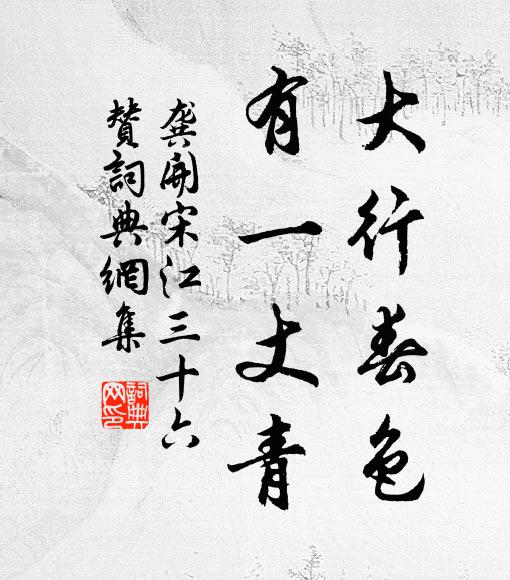 大行春色
有一丈青
龚開宋江三十六
贊詞典網集
詞典
网印